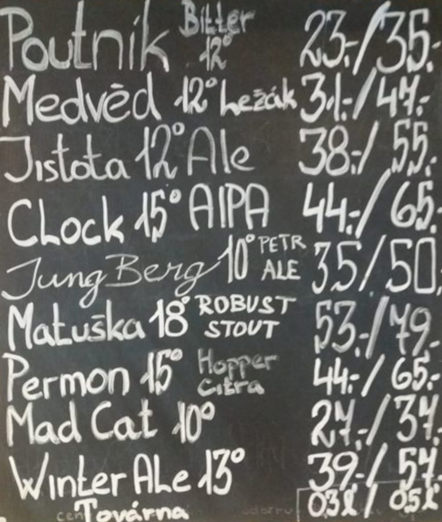 Poutník Bitter 12° 23.-/35.-
Medvěd 12° Ležák 31.-/47.-
Jistota 12° Ale 38.-/55.-
Clock 15° AIPA 44.-/65.-
Jung Berg 10° PETR ALE 35/50,
Matuška 18° ROBUST STOUT 53.-/79.-
Permon 15° Hopper Citra 44.-/65.-
Mad Cat 10° 27.-/37.-
Winter Ale 13° 39.-/57.-
Továrna 0,3l/0,5l